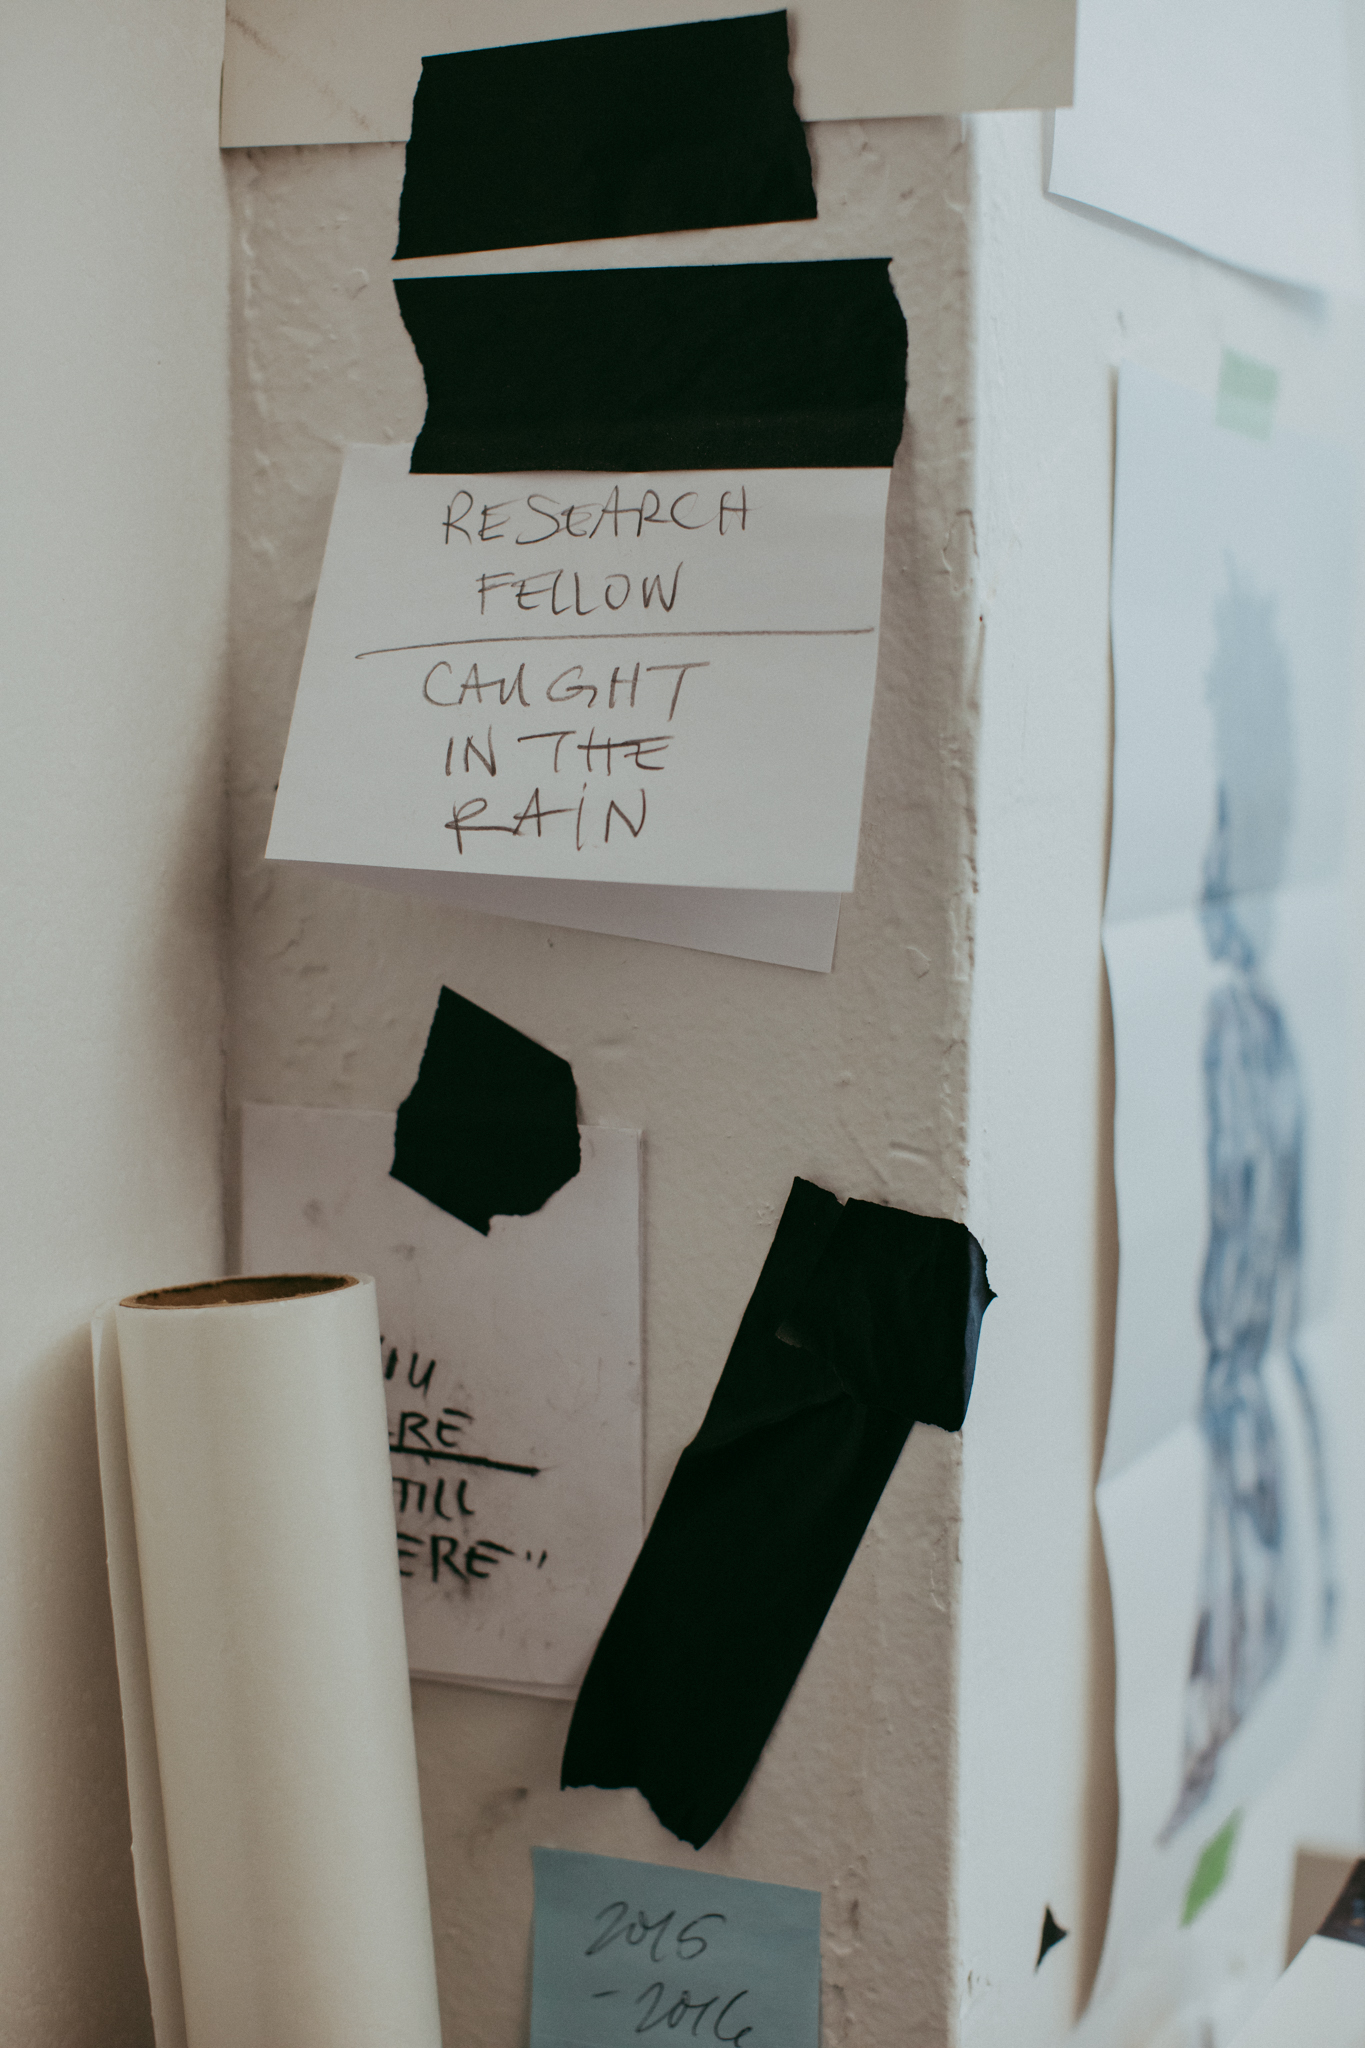 RESEARCH
FELLOW
CAUGHT
IN THE
RAIN
ERE"
2015
-2016